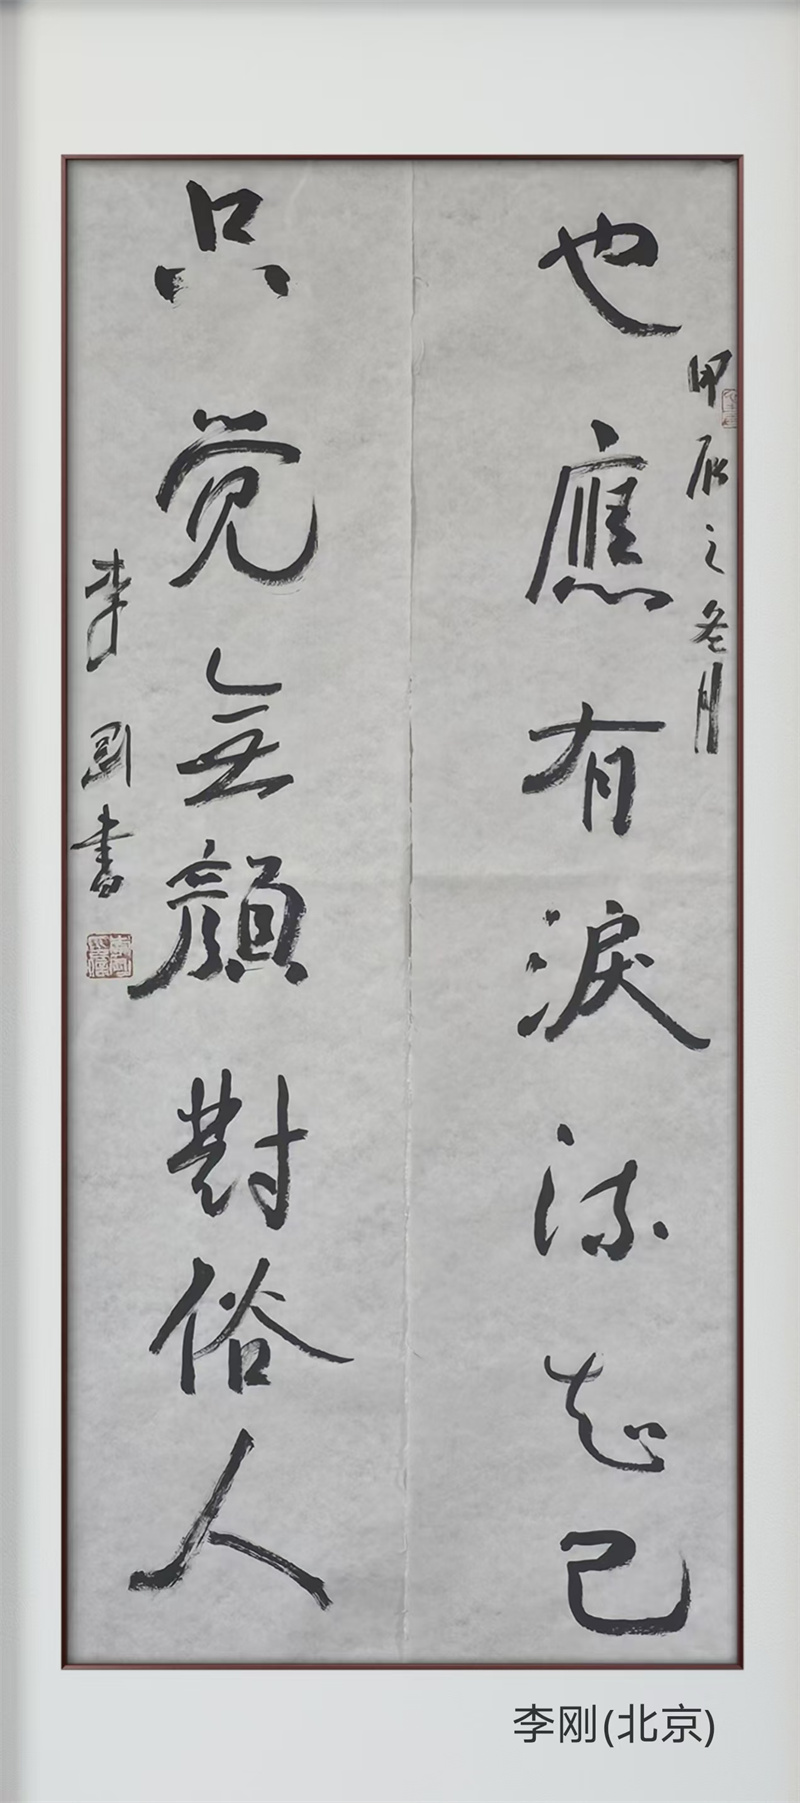 也應有淚流知己
甲辰之冬月
只觉無顔對俗人
李剛書
李刚(北京)